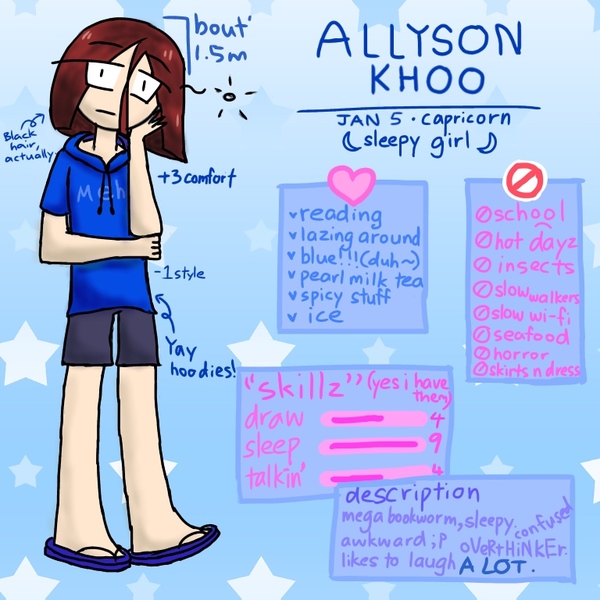 ALLYSON
KHOO
JAN 5 · capricorn
sleepy girl
'bout'
1.5m
Black
hair,
actually
Meh
+3 comfort
-1 style
Yay
hoodies!
reading
lazing around
blue!!!(duh~)
pearl milk tea
spicy stuff
ice
school
hot dayz
insects
slow walkers
slow wi-fi
seafood
horror
skirts n dress
"skillz" (yes i have
them)
draw 4
sleep 9
talkin' 4
description
mega bookworm, sleepy. confused
awkward ;P oVeRtHiNkEr.
likes to laugh A LOT.